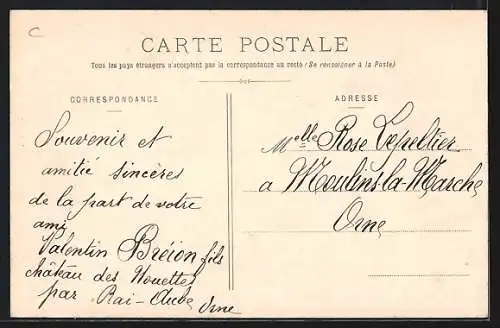 C
CARTE POSTALE
Tous les pays étrangers n'acceptent pas la correspondance au recto (Se renseigner à la Poste)
CORRESPONDANCE
Souvenir et
amitié sincères
de la part de votre
ami
Valentin Bréion fils
château des Nouettes
par Rai-Aube
Orne
ADRESSE
Melle Rose Lepeltier
a Moulins-la-Marche
Orne